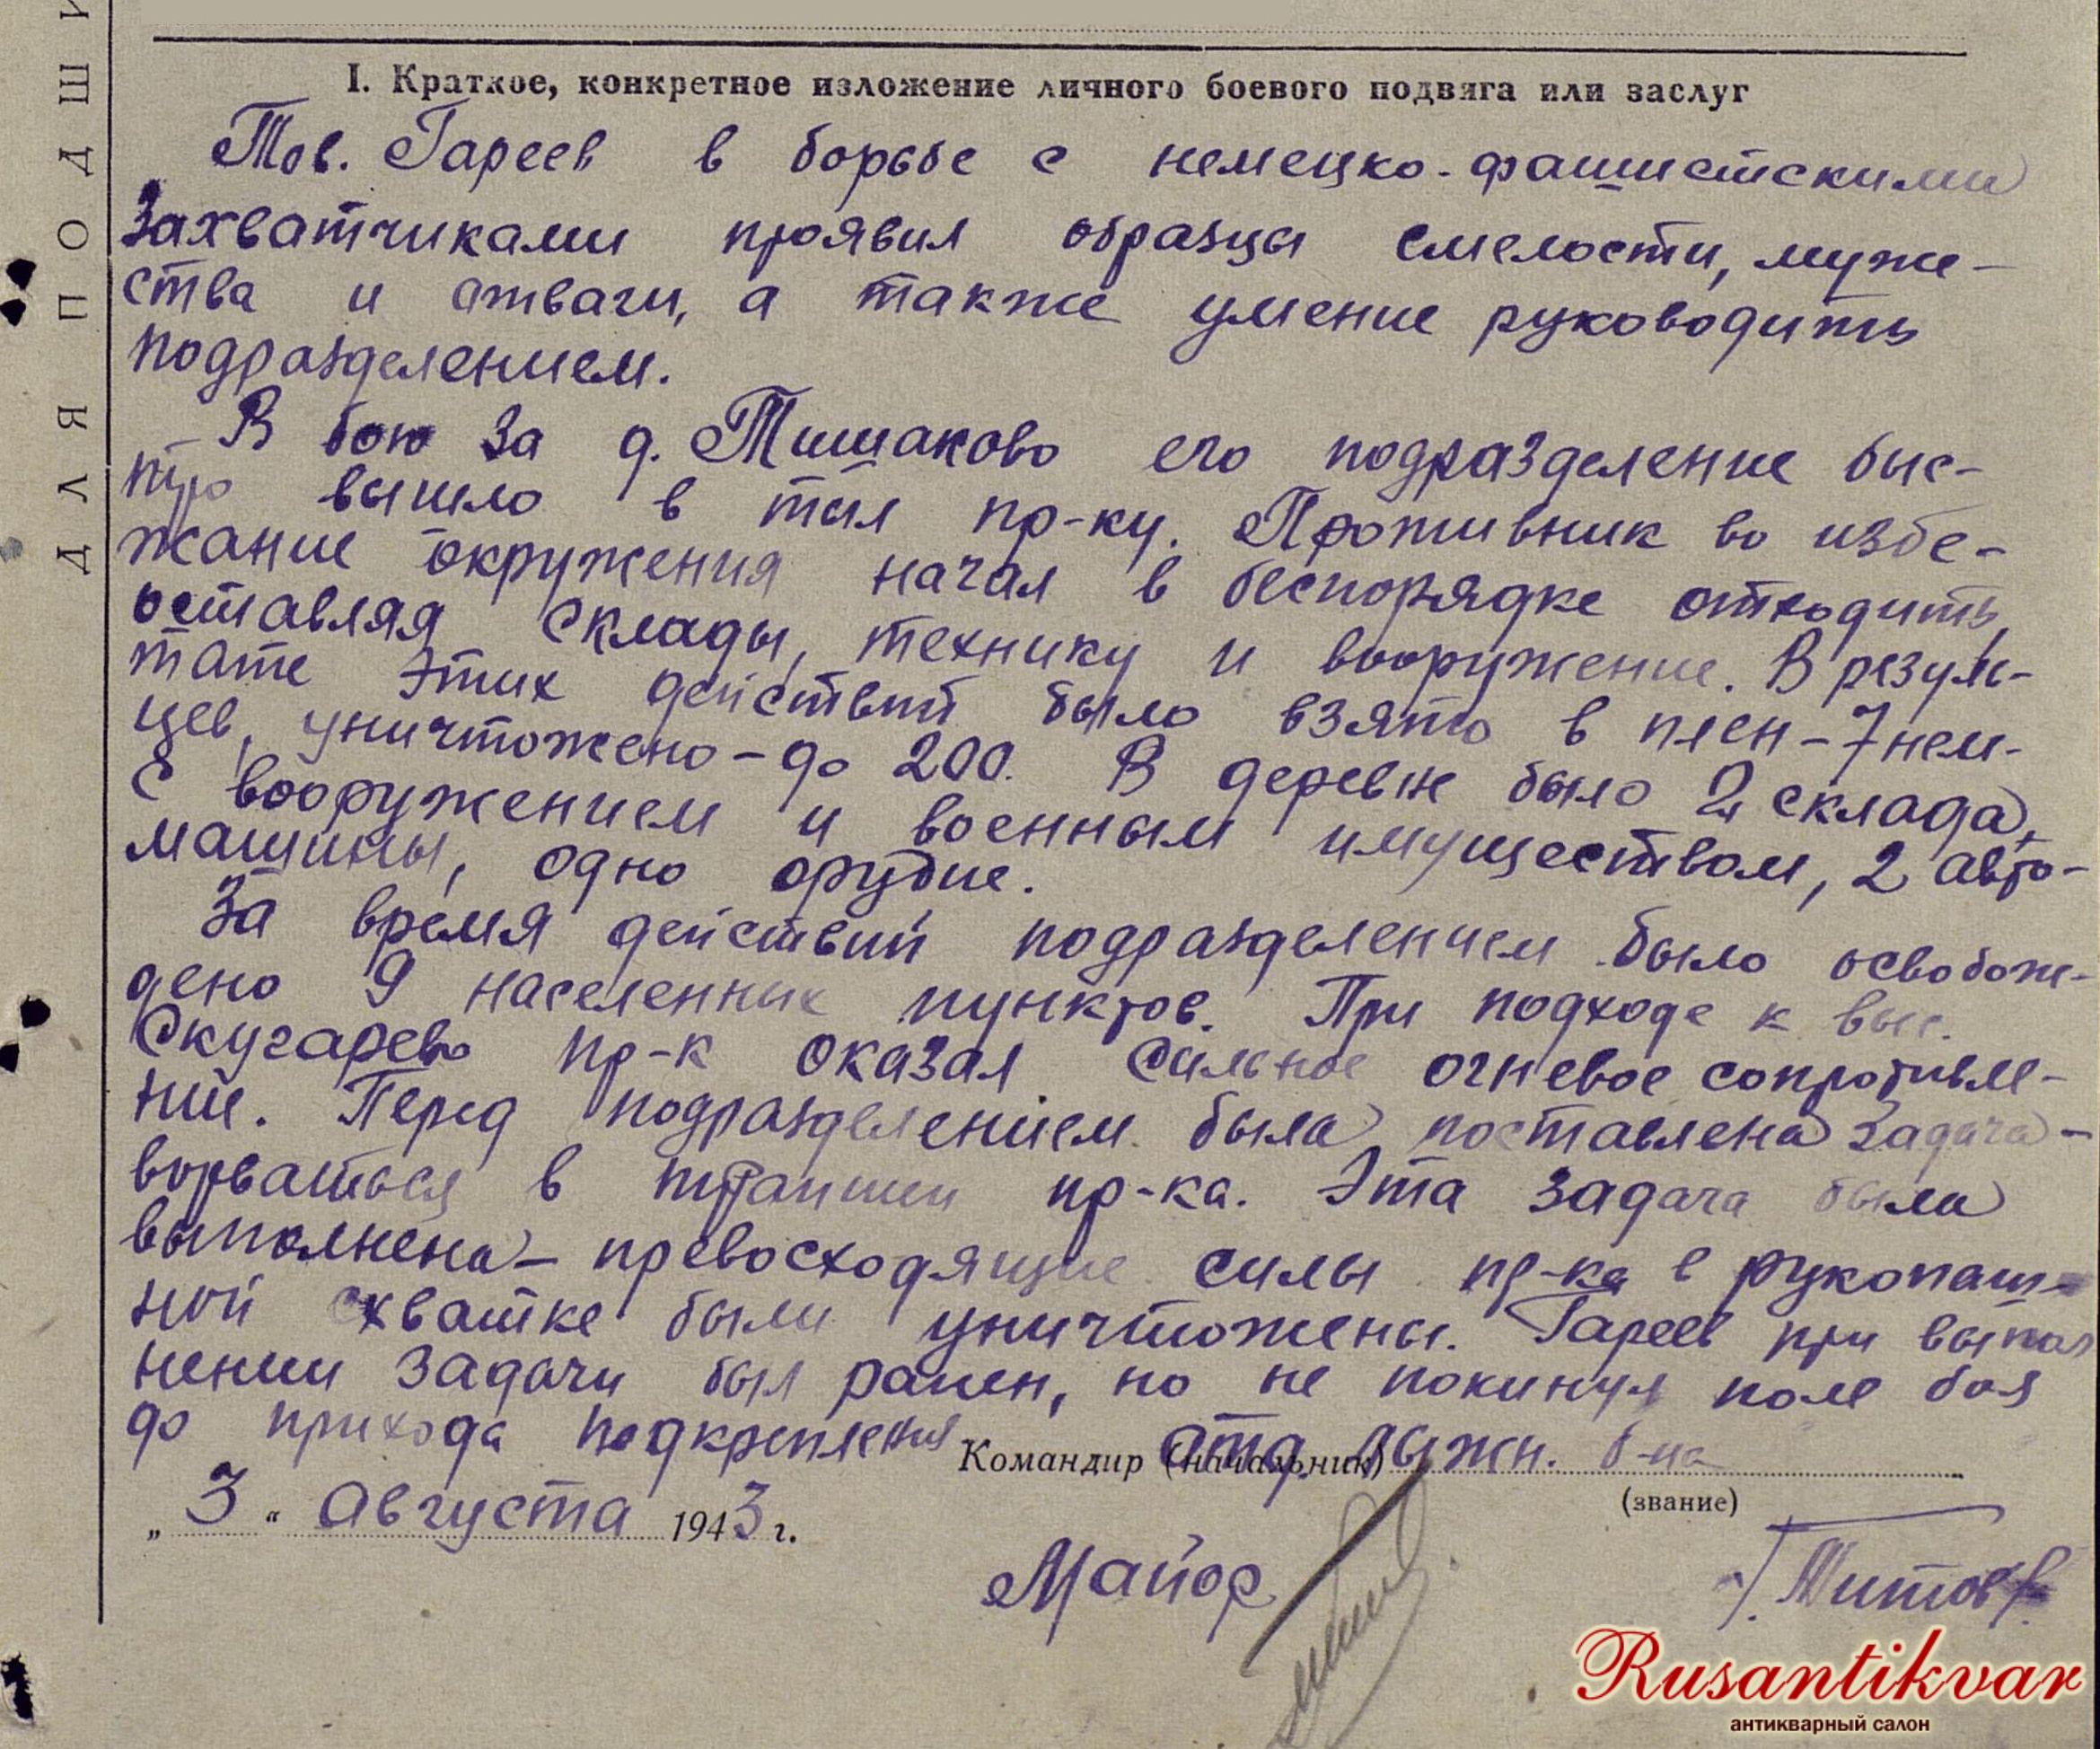 ДЛЯ ПОДШИ
I. Краткое, конкретное изложение личного боевого подвига или заслуг
Тов. Гареев в борьбе с немецко-фашистскими
захватчиками проявил образцы смелости, муже-
ства и отваги, а также умение руководить
подразделением.
В бою за д. Тишаково его подразделение быс-
тро вышло в тыл пр-ку. Противник во избе-
жание окружения начал в беспорядке отходить,
оставляя склады, технику и вооружение. В резуль-
тате этих действий было взято в плен - 7 нем-
цев, уничтожено - до 200. В деревне было 2 склада
с вооружением и военным имуществом, 2 авто-
машины, одно орудие.
За время действий подразделением было освобож-
дено 9 населенных пунктов. При подходе к выс.
Скугарево пр-к оказал сильное огневое сопротивле-
ние. Перед подразделением была поставлена задача -
ворваться в траншеи пр-ка. Эта задача была
выполнена - превосходящие силы пр-ка в рукопаш-
ной схватке были уничтожены. Гареев при выпол
нении задачи был ранен, но не покинул поле боя
до прихода подкрепления
Командир (начальник) отд. лыжн. б-на
(звание)
„ 3 “ Августа 1943 г.
Майор
Титов
Rusantikvar
антикварный салон